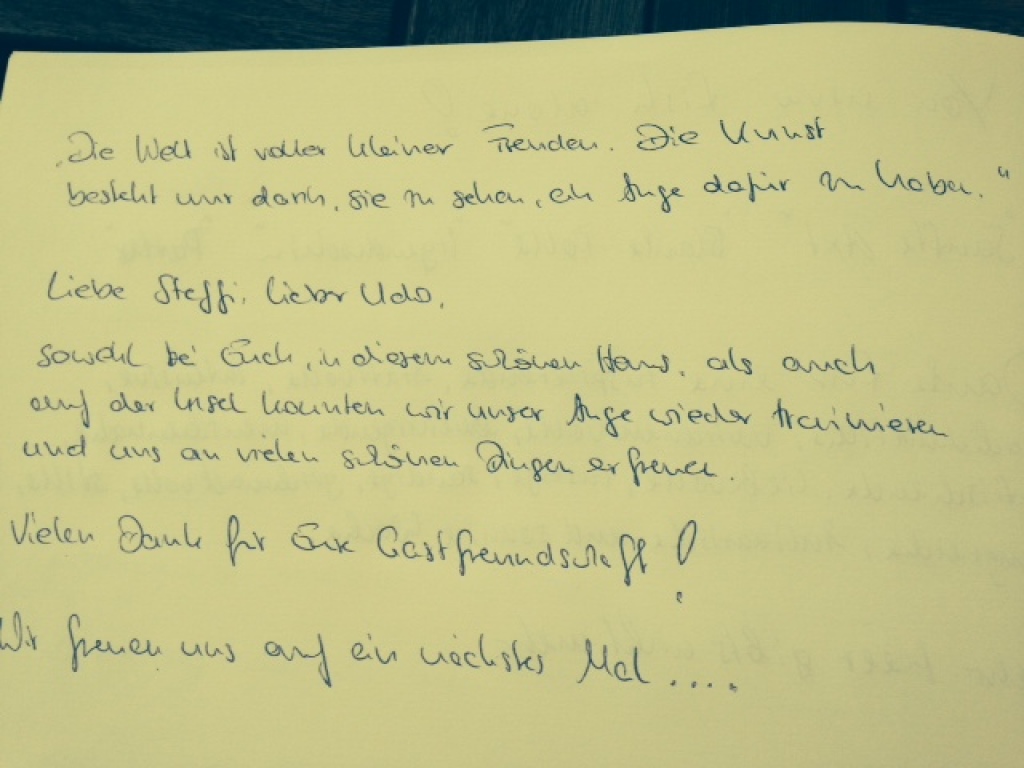 „Die Welt ist voller kleiner Freuden. Die Kunst
besteht nur darin, sie zu sehen, ein Auge dafür zu haben."
Liebe Steffi, lieber Udo,
sowohl bei Euch, in diesem schönen Haus, als auch
auf der Insel konnten wir unser Auge wieder trainieren
und uns an vielen schönen Dingen erfreuen
Vielen Dank für Eure Gastfreundschaft!
Wir freuen uns auf ein nächstes Mal....